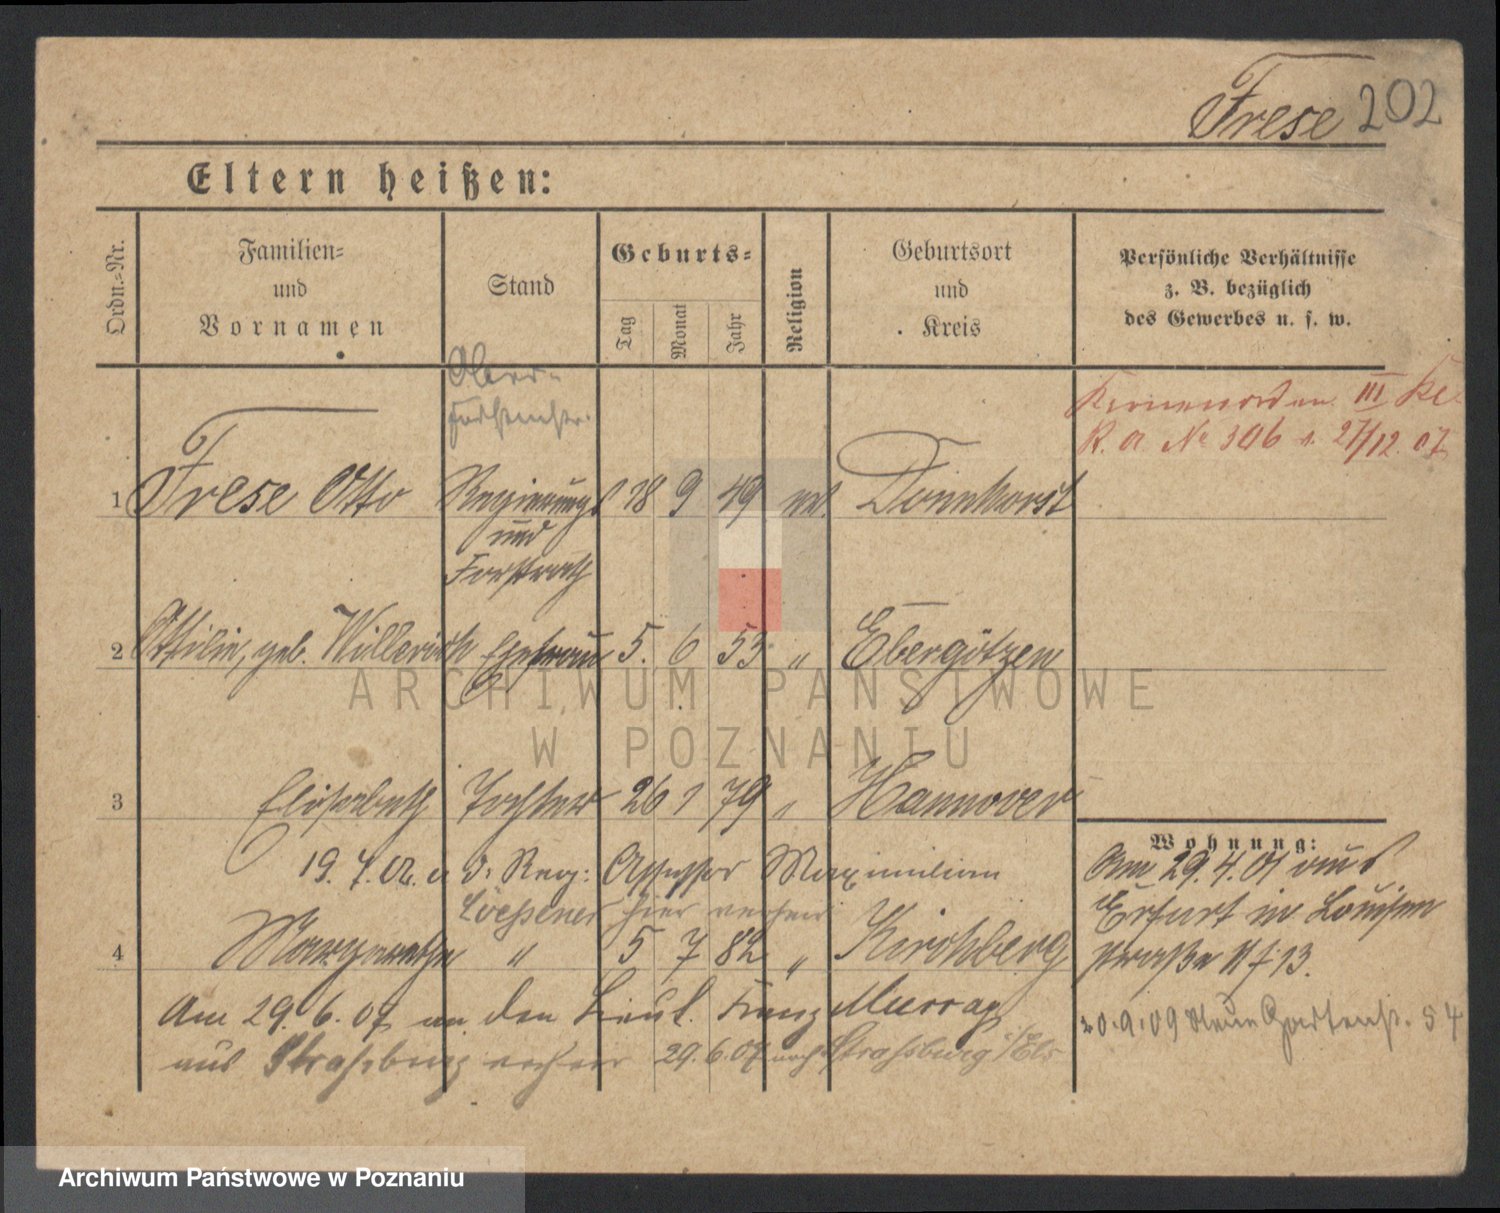 Frese 202
Eltern heißen:
Ordn.-Nr.
Familien=
und
Vornamen
Stand
Geburts=
Tag
Monat
Jahr
Religion
Geburtsort
und
Kreis
Persönliche Verhältnisse
z. B. bezüglich
des Gewerbes u. s. w.
Ober-
forstmstr.
Kronenorden III Kl
R. A. No 306 v. 27/12. 07
1 Frese Otto Regierungs 18 9 49 ev. Dannhorst
und
Forstrath
2 Ottilie, geb. Willerich Ehefrau 5. 6 53 " Ebergötzen
ARCHIWUM PAŃSTWOWE
W POZNANIU
3 Elisabeth Tochter 26 1 79 " Hannover
Wohnung:
19. 4. 02. a. d. Reg: Assessor Maximilian
Am 29.4.01 aus
Loehsener hier verheir
Erfurt in Louisen
4 Margarethe " 5 7 82 " Kirchberg
straße N f 13.
Am 29. 6. 07 an den Lieut. Franz Murray
20.9.09 Neue Gartenst. 54
aus Strassburg verheir 29.6.07 nach Strassburg i/Els
Archiwum Państwowe w Poznaniu